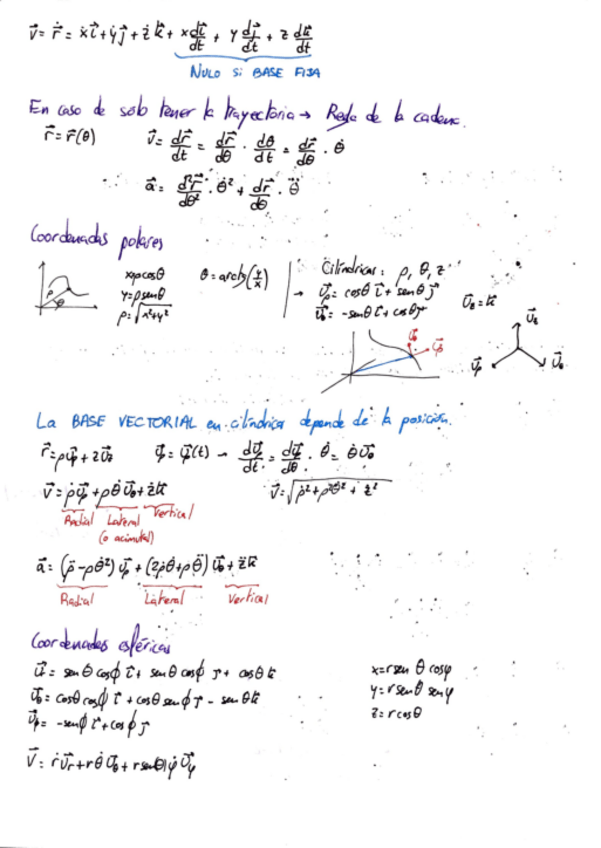 v⃗ = ṙ⃗ = ẋi⃗ + ẏj⃗ + żk⃗ + x di⃗/dt + y dj⃗/dt + z dk⃗/dt
NULO SI BASE FIJA
En caso de sólo tener la trayectoria → Regla de la cadena.
r⃗ = r⃗(θ) v⃗ = dr⃗/dt = dr⃗/dθ · dθ/dt = dr⃗/dθ · θ̇
a⃗ = d²r⃗/dθ² · θ̇² + dr⃗/dθ · θ̈
Coordenadas polares
x=ρcosθ θ = arctg(y/x) Cilíndricas: ρ, θ, z
y=ρsenθ → U⃗ρ = cosθ i⃗ + senθ j⃗
ρ=√x²+y² U⃗θ = -senθ i⃗ + cosθ j⃗ U⃗z = k⃗
ρ θ
U⃗θ U⃗ρ U⃗z U⃗ρ U⃗θ
La BASE VECTORIAL en cilíndrica depende de la posición.
r⃗ = ρU⃗ρ + zU⃗z U⃗ρ = U⃗ρ(t) → dU⃗ρ/dt = dU⃗ρ/dθ · θ̇ = θ̇U⃗θ
v⃗ = ρ̇U⃗ρ + ρθ̇U⃗θ + żk⃗ v = √ρ̇² + ρ²θ̇² + ż²
Radial Lateral Vertical
(o acimutal)
a⃗ = (ρ̈ - ρθ̇²) U⃗ρ + (2ρ̇θ̇ + ρθ̈) U⃗θ + z̈k⃗
Radial Lateral Vertical
Coordenadas esféricas
U⃗r = senθ cosϕ i⃗ + senθ cosϕ j⃗ + cosθ k⃗ x=r sen θ cosφ
U⃗θ = cosθ cosϕ i⃗ + cosθ senϕ j⃗ - senθ k⃗ y=r senθ senφ
U⃗φ = -senϕ i⃗ + cosϕ j⃗ z=r cosθ
v⃗ = ṙU⃗r + rθ̇U⃗θ + r senθ φ̇U⃗φ